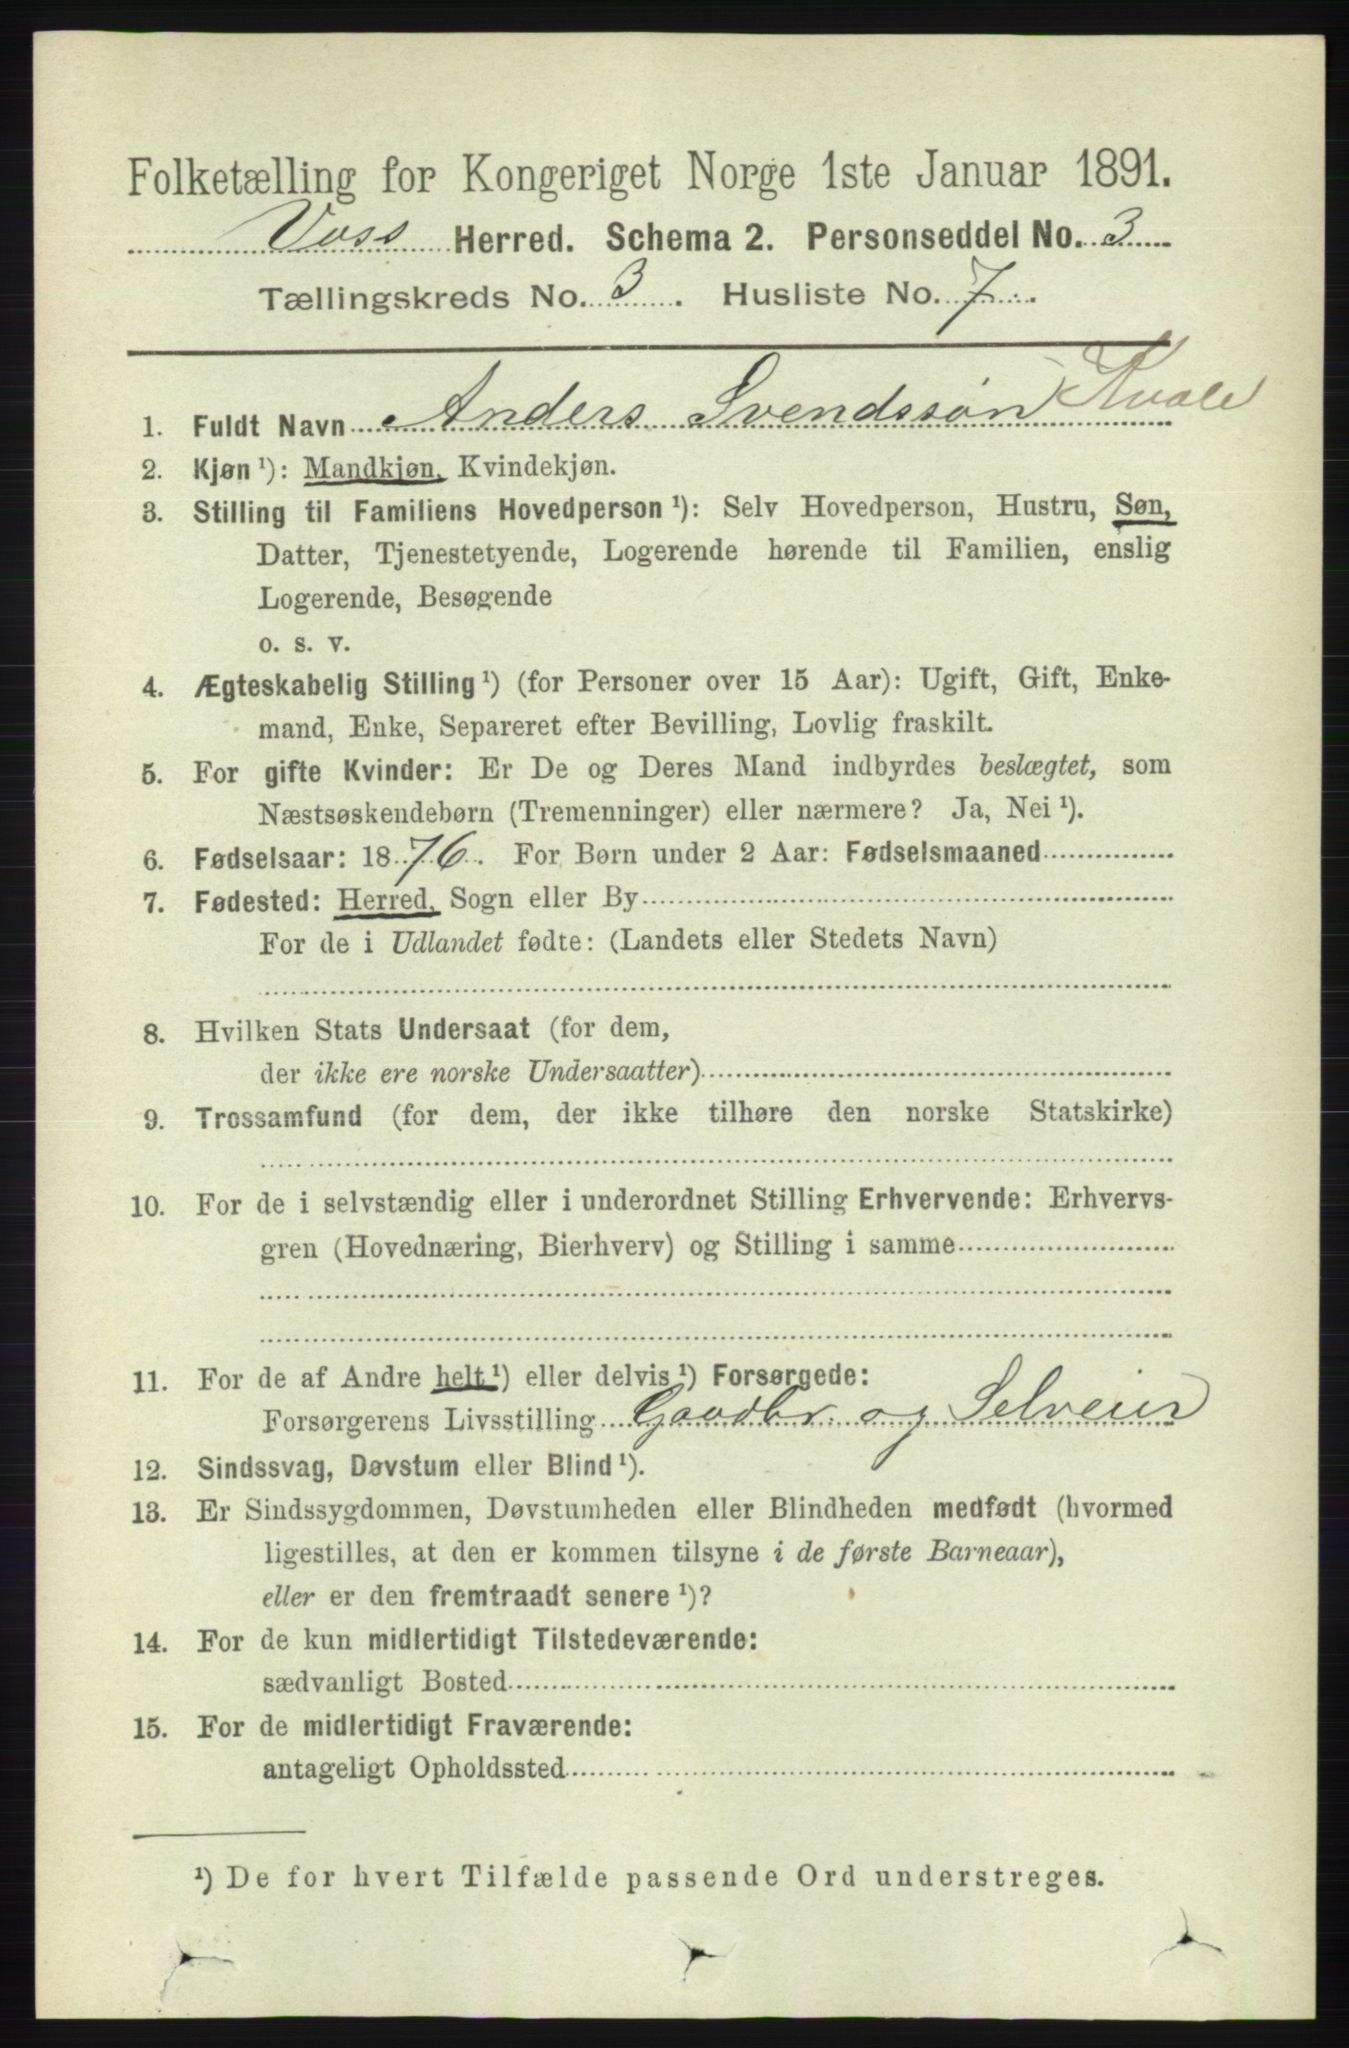 Folketælling for Kongeriget Norge 1ste Januar 1891.
Voss Herred. Schema 2. Personseddel No. 3
Tællingskreds No. 3. Husliste No. 7.
1. Fuldt Navn Anders Svendssøn Kvale
2. Kjøn ¹): Mandkjøn, Kvindekjøn.
3. Stilling til Familiens Hovedperson ¹): Selv Hovedperson, Hustru, Søn,
Datter, Tjenestetyende, Logerende hørende til Familien, enslig
Logerende, Besøgende
o. s. v.
4. Ægteskabelig Stilling ¹) (for Personer over 15 Aar): Ugift, Gift, Enke-
mand, Enke, Separeret efter Bevilling, Lovlig fraskilt.
5. For gifte Kvinder: Er De og Deres Mand indbyrdes beslægtet, som
Næstsøskendebørn (Tremenninger) eller nærmere? Ja, Nei ¹).
6. Fødselsaar: 1876. For Børn under 2 Aar: Fødselsmaaned
7. Fødested: Herred, Sogn eller By
For de i Udlandet fødte: (Landets eller Stedets Navn)
8. Hvilken Stats Undersaat (for dem,
der ikke ere norske Undersaatter)
9. Trossamfund (for dem, der ikke tilhøre den norske Statskirke)
10. For de i selvstændig eller i underordnet Stilling Erhvervende: Erhvervs-
gren (Hovednæring, Bierhverv) og Stilling i samme
11. For de af Andre helt ¹) eller delvis ¹) Forsørgede:
Forsørgerens Livsstilling Gaadbr. og Selveier
12. Sindssvag, Døvstum eller Blind ¹).
13. Er Sindssygdommen, Døvstumheden eller Blindheden medfødt (hvormed
ligestilles, at den er kommen tilsyne i de første Barneaar),
eller er den fremtraadt senere ¹)?
14. For de kun midlertidigt Tilstedeværende:
sædvanligt Bosted
15. For de midlertidigt Fraværende:
antageligt Opholdssted
¹) De for hvert Tilfælde passende Ord understreges.